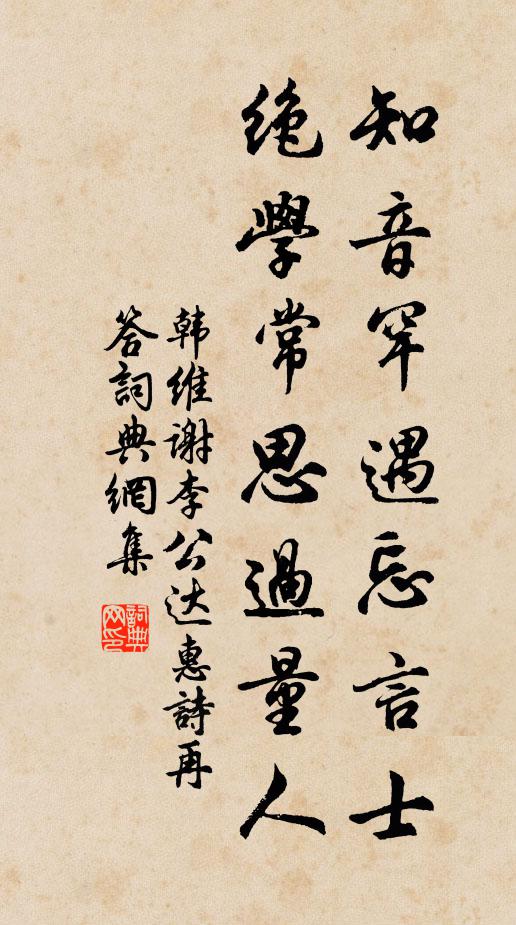 知音罕遇忘言士
絶學常思過量人
韩维谢李公达惠詩再
答詞典網集
詞典網印